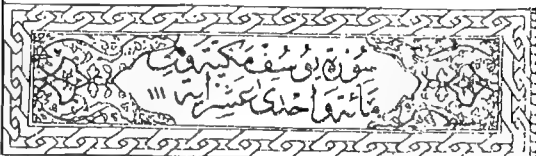 سُورَة يُوسُف مَكِّيَّة وَهِيَ
مَائَة وَاحْدَى عَشَرَ آيَة ١١١